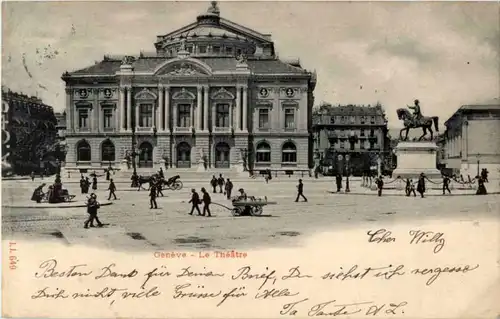 Genève - Le Théâtre
Cher Willy
Besten Dank für Deinen Brief, Du siehst ich vergesse
Dich nicht, viele Grüsse für Alle
Ta Tante A. L.
LL 646